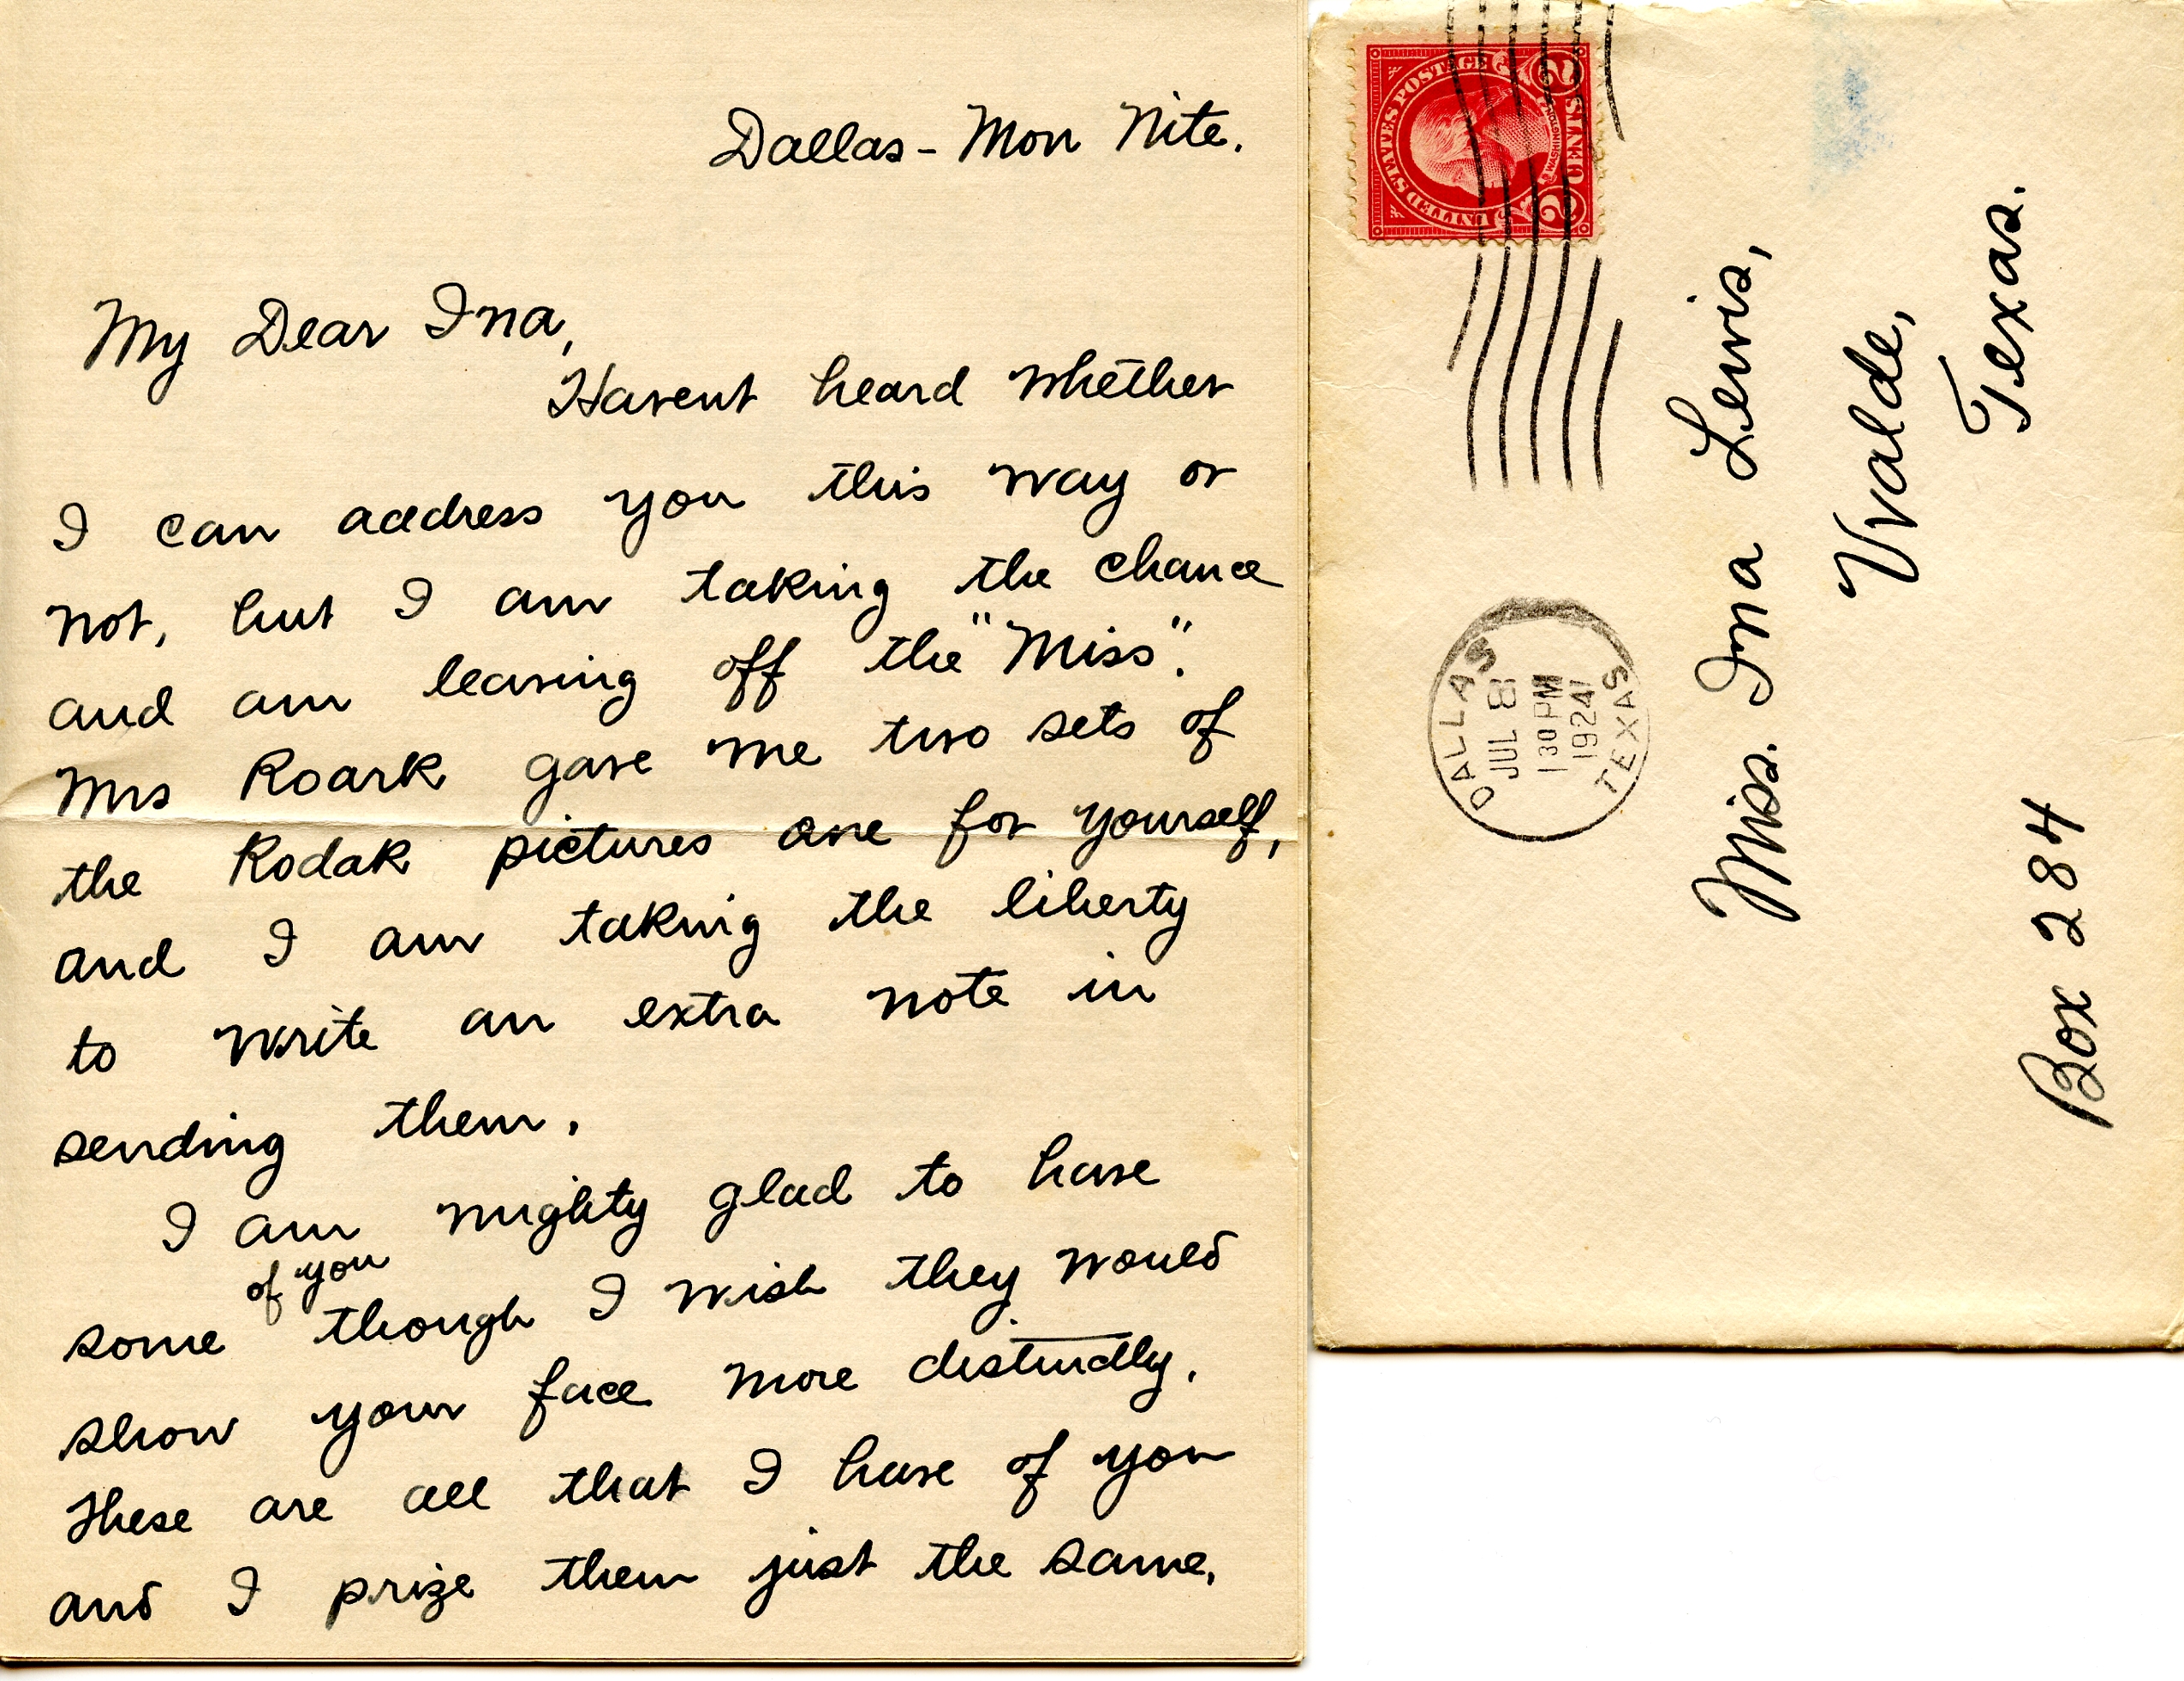 Dallas - Mon Nite.
My Dear Ina,
Havent heard whether
I can address you this way or
not, but I am taking the chance
and am leaving off the "Miss".
Mrs Roark gave me two sets of
the Kodak pictures one for yourself,
and I am taking the liberty
to write an extra note in
sending them.
I am mighty glad to have
of you
some though I wish they would
show your face more distinctly.
These are all that I have of you
and I prize them just the same.
UNITED STATES POSTAGE
WASHINGTON
2 CENTS 2
DALLAS
JUL 8
1 30 PM
1924
TEXAS
Miss. Ina Lewis,
Uvalde,
Texas.
Box 284